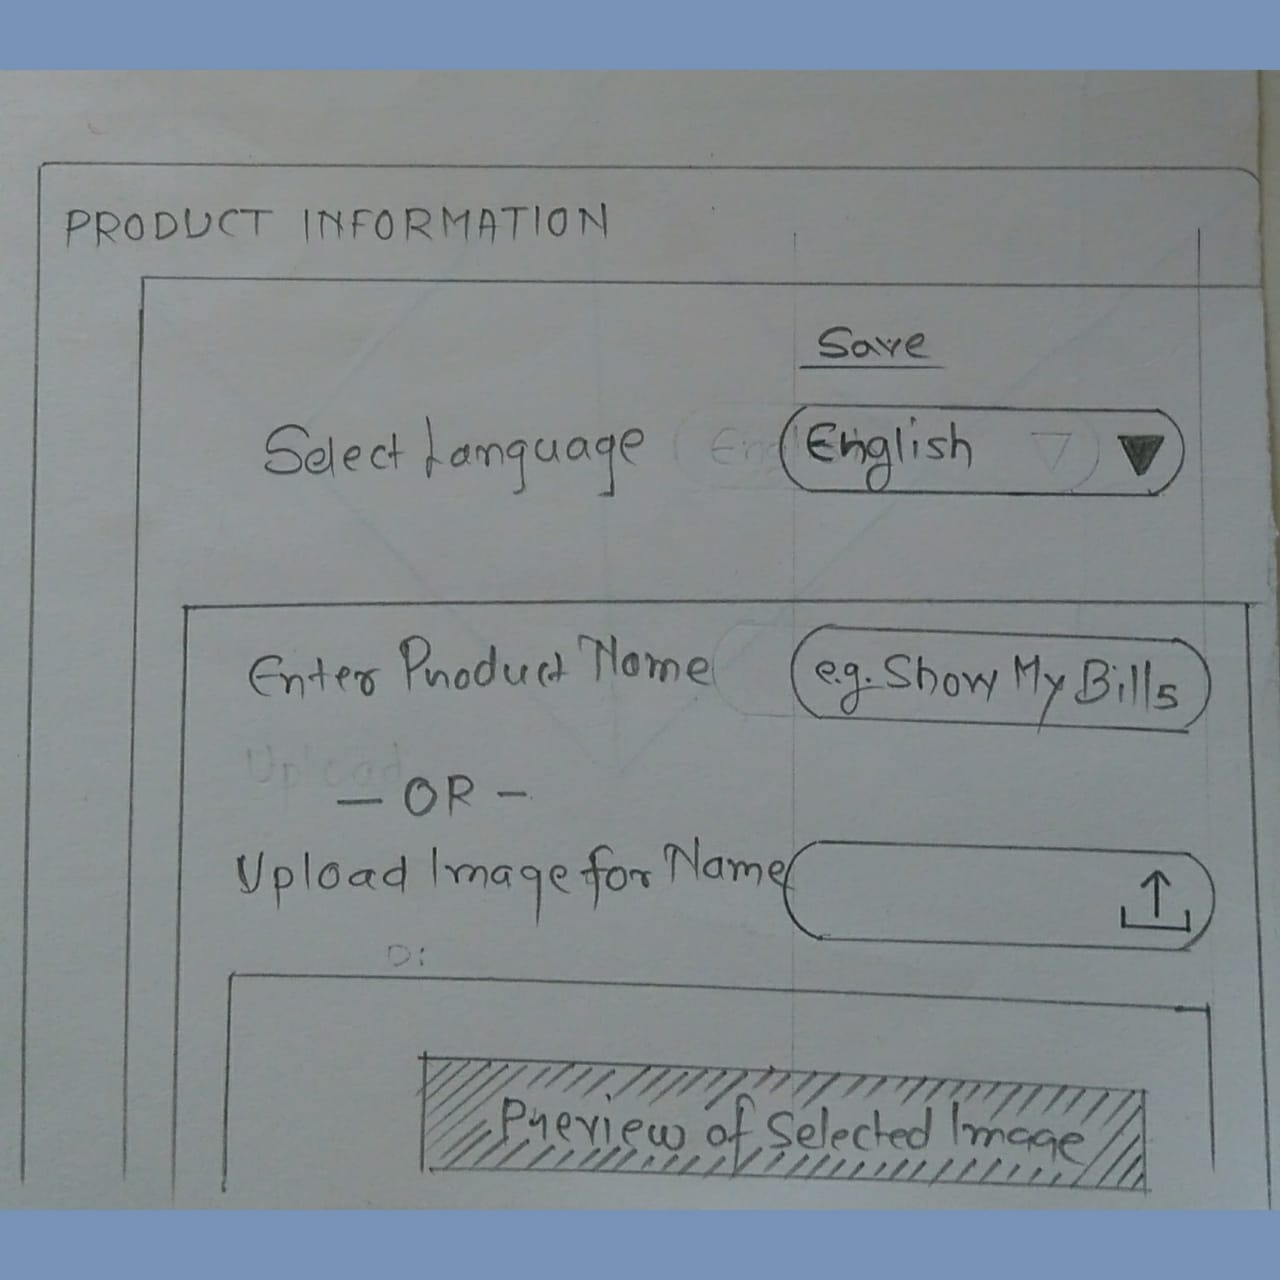 PRODUCT INFORMATION
Save
Select Language English
Enter Product Name e.g. Show My Bills
Upload
— OR –
Upload Image for Name
D:
Preview of Selected Image